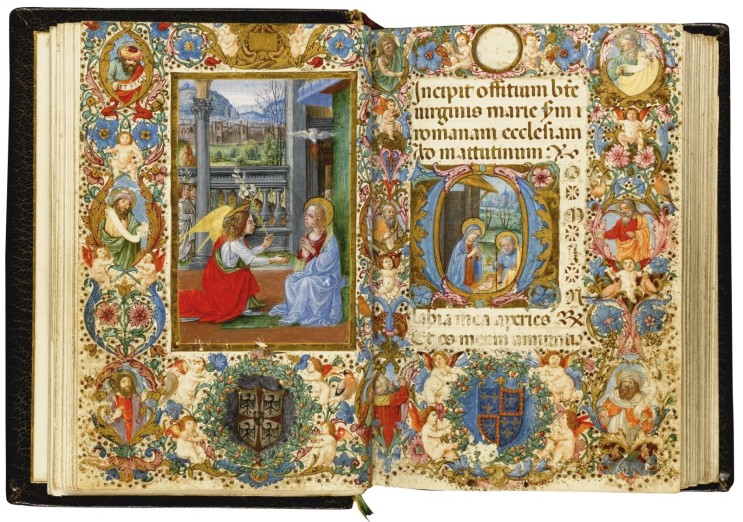 Incipit offitium bte
uirginis marie sm i
romanam ecclesiam
Ad mattutinum. V
D
O
M
I
N
labia mea aperies R
Et os meum annuntia